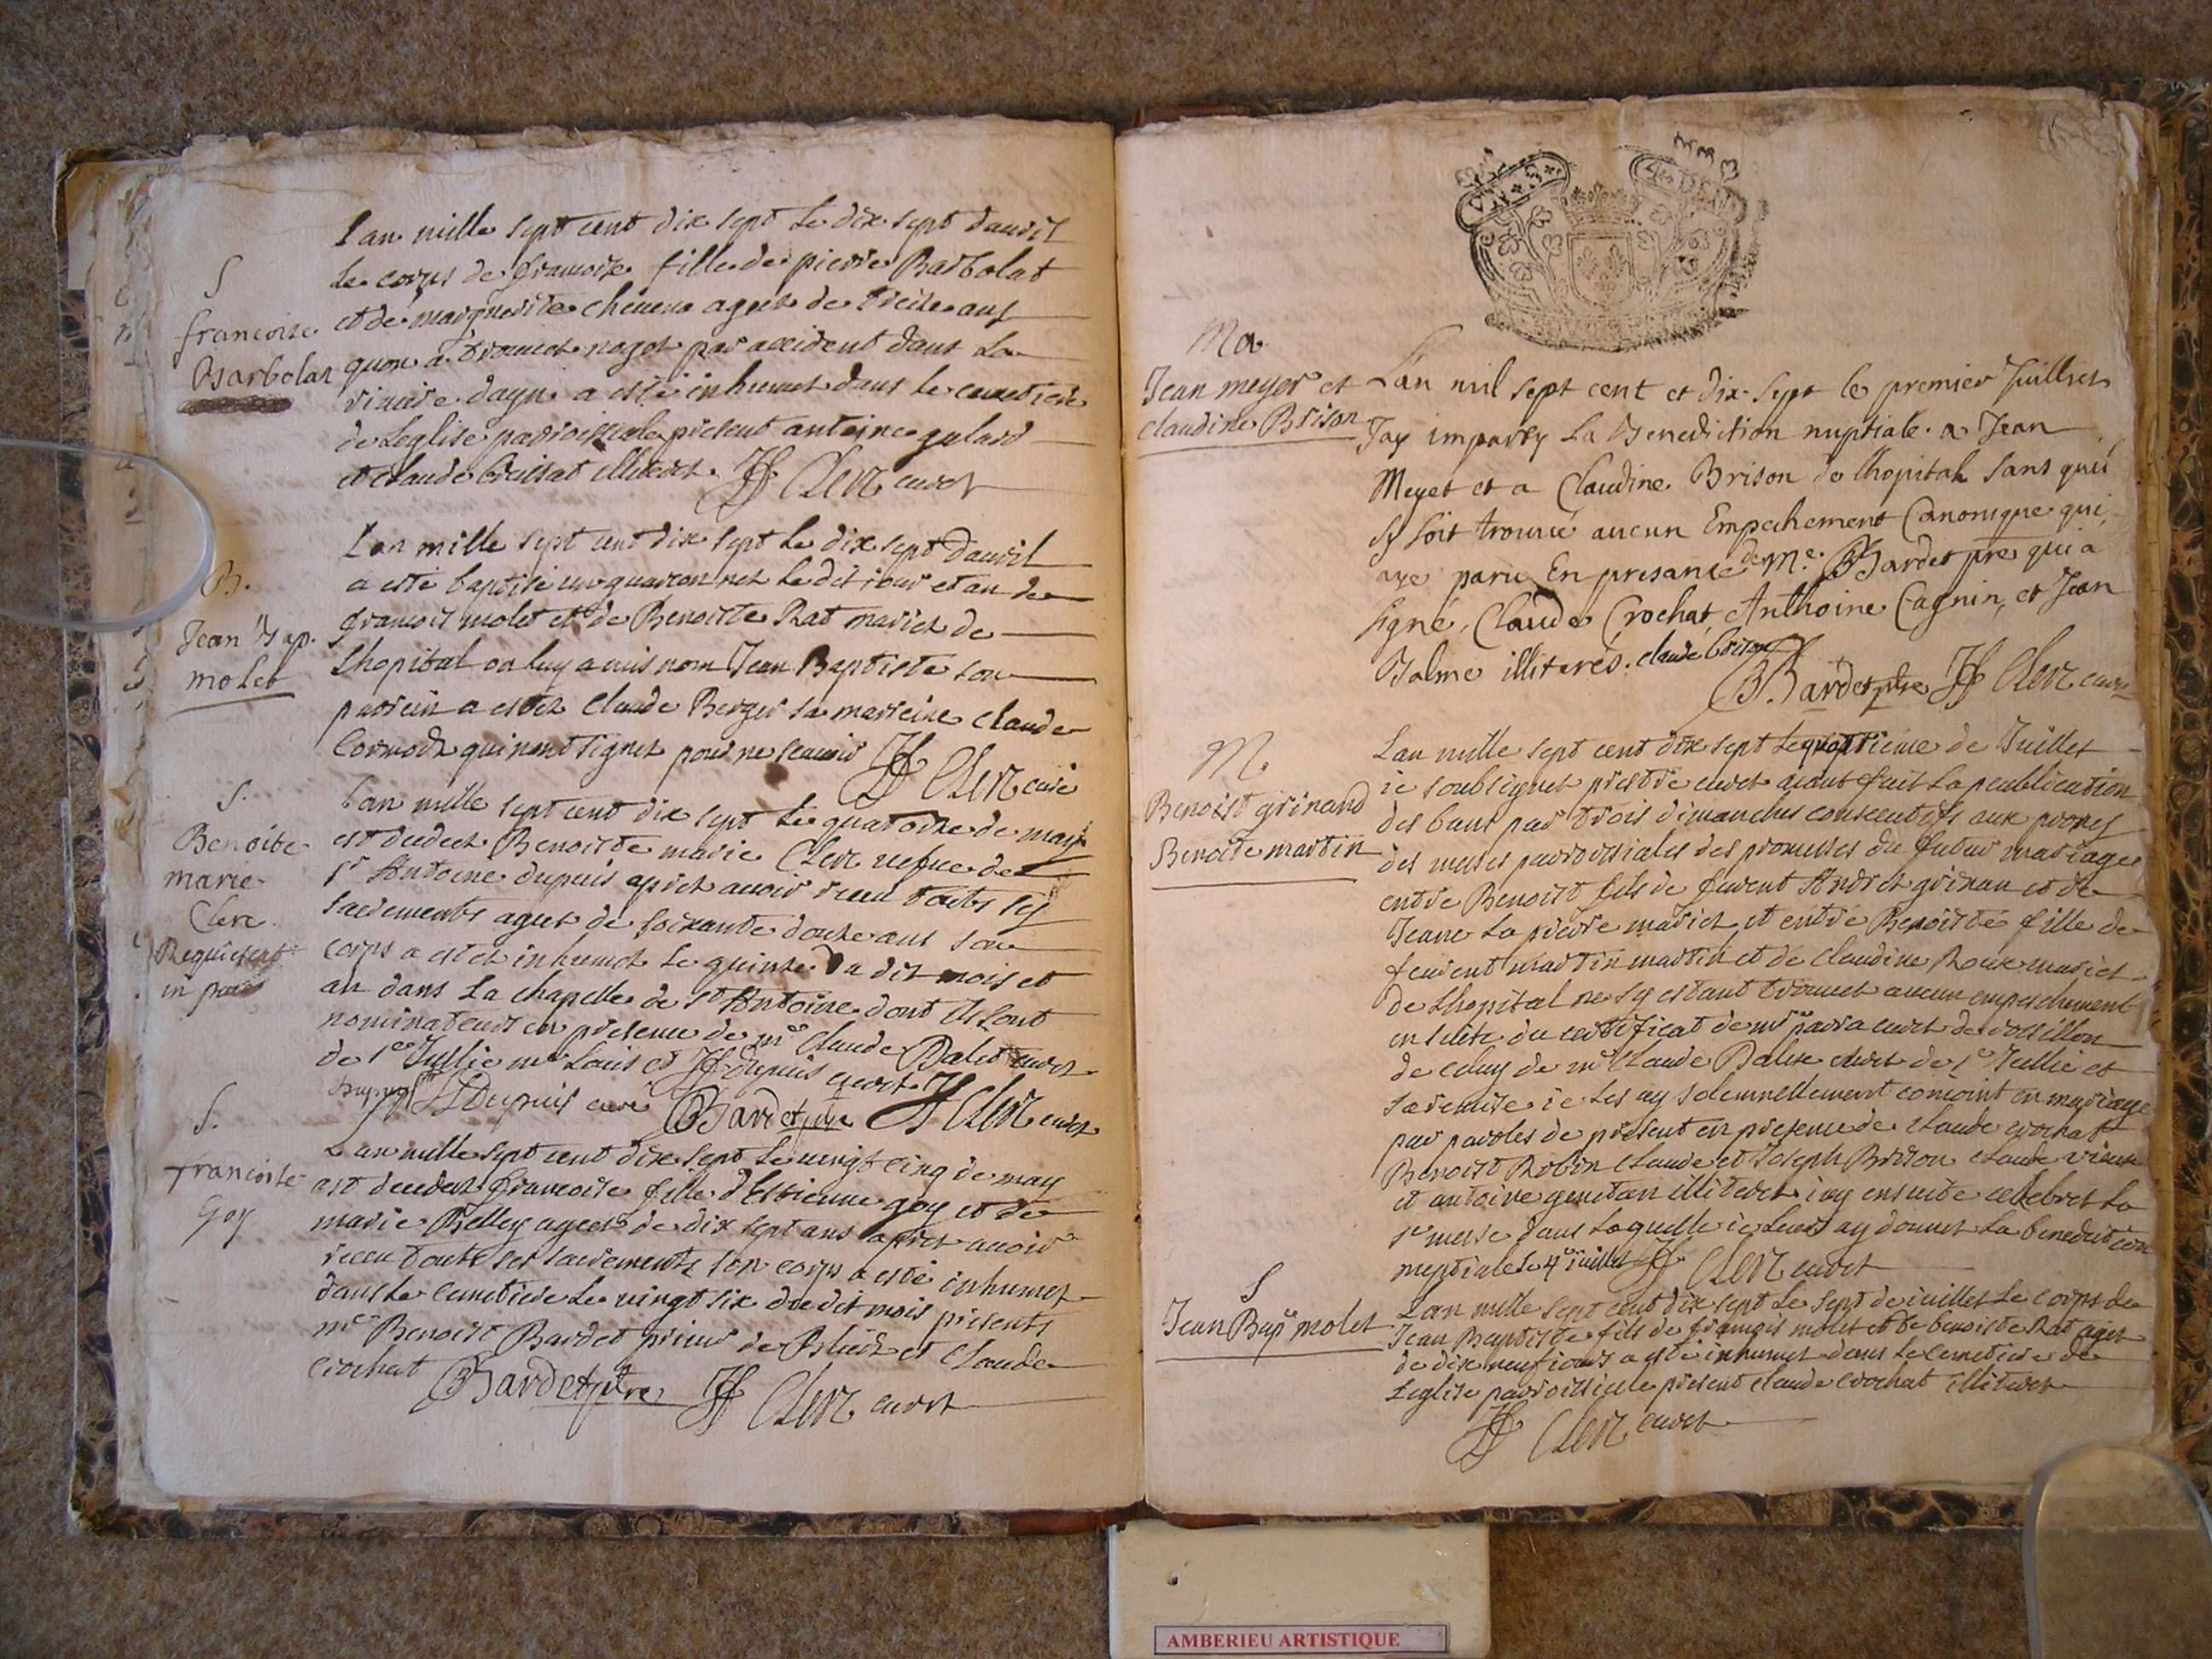 S
francoise
Barbolat
L an mille sept cent dix sept le dix sept dauril
le corps de francoise fille de pierre Barbolat
et de marguerite cheuene agee de treize ans
quon a trouuet noget par accident dans la
riuiere dayn a esté inhumet dans le cemetiere
de Leglise parroissiale present antoine galard
et claude brissat illiterez Clerc curet
B.
Jean Bap.
molet
L an mille sept cent dix sept le dix sept dauril
a esté baptisé un guarcon net le dit iour et an de
francois molet et de Benoiste Rat mariet de
Lhopital on luy a mis nom Jean Baptiste son
parrein a estet Claude Berger sa marreine claude
qui nont signet pour ne scauoir Clerc curé
S.
Benoite
marie
Clerc
Requiescat
in pace
L an mille sept cent dix sept le quatorze de may
est decedet Benoiste marie Clerc uefue de
sr Antoine dupuis apret auoir receu touts ses
sacrements aget de soixante douze ans son
corps a estet inhumet le quinze du dit mois et
an dans la chapelle de st Antoine dont ils sont
nominateurs en presence de mre Claude Balet curet
de ste Jullie mre Louis et dupuis curet
Dupuis curé Bardet ptre Clerc curet
S.
francoise
Goy
L an mille sept cent dix sept le uingt cinq de may
est decedet francoise fille dEstienne goy et de
marie Belley ageet de dix sept ans apret auoir
receu touts ses sacrements son corps a esté inhumet
dans le cemetiere le uingt six du dit mois presents
mre Benoist Bardet prieur de et Claude
crochat Bardet ptre Clerc curet
Ma
Jean meyet et
claudine Brison
L'an mil sept cent et dix sept le premier Juillet
Jay imparty la Benediction nuptiale a Jean
Meyet et a Claudine Brison de lhopital sans quil
sy soit trouué aucun Empechement Canonique qui
aye paru En presance de Me. Bardet ptre qui a
signé, Claude Crochat, Anthoine Cagnin, et Jean
Balme illiterés. claude brison
B. Bardet ptre Clerc curet
M
Benoist grinand
Benoite martin
Lan mille sept cent dix sept le quatrieme de Juillet
ie soubsignet prestre curet aiant fait la peublication
des bans par trois dimanches consecutifs aux prones
des messes parroissiales des promesses du futur mariage
entre Benoist fils de feuent Andret grinan et de
Jeane La pierre mariet et entre Benoiste fille de
feuent martin martin et de claudine Roux mariet
de Lhopital ne sy estant trouuet aucun empeschement
en suite du certificat de mre curet de rossillon
de celuy de mre Claude Balet curet de ste Jullie et
sa remise ie les ay solemnellement conioint en mariage
par paroles de present en presence de claude crochat
Benoist Robin claude et Joseph Brison claude
et antoine illiteret iay ensuite celebret la
ste messe dans laquelle ie leur ay donnet la benediction
nuptiale le 4e iuillet Clerc curet
S
Jean Bapte molet
Lan mille sept cent dix sept le sept de iuillet le corps de
Jean Baptiste fils de francois molet et de benoiste Rat aget
de dix neuf iours a esté inhumet dans le cemetiere de
Leglise parroissiale present claude crochat illiteret
Clerc curet
AMBERIEU ARTISTIQUE